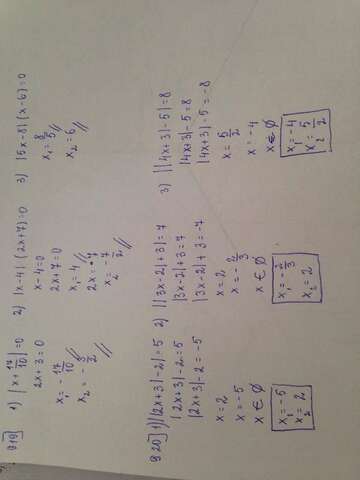 919
1) |x+17/10|=0
2x+3=0
x₁=-17/10
x₂=-3/2
2) |x-4|·(2x+7)=0
x-4=0
2x+7=0
x₁=4
2x=-7
x₂=-7/2
3) |5x-8|(x-6)=0
x₁=8/5
x₂=6
920
1) ||2x+3|-2|=5
|2x+3|-2=5
|2x+3|-2=-5
x=2
x=-5
x∈∅
x₁=-5
x₂=2
2) ||3x-2|+3|=7
|3x-2|+3=7
|3x-2|+3=-7
x=2
x=-2/3
x∈∅
x₁=-2/3
x₂=2
3) ||4x+3|-5|=8
|4x+3|-5=8
|4x+3|-5=-8
x=5/2
x=-4
x∈∅
x₁=-4
x₂=5/2